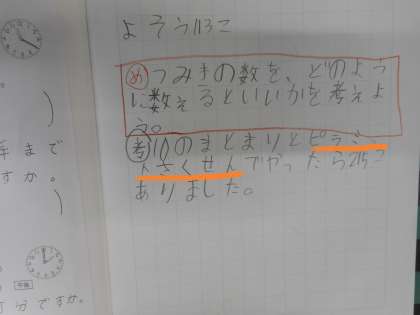 よそう113こ
め つみきの数を、どのよう
に数えるといいかを考えよ
う。
考 10のまとまりとピラミ
ドさくせんでやったら215こ
ありました。
までに
すか。
午後
分ですか。